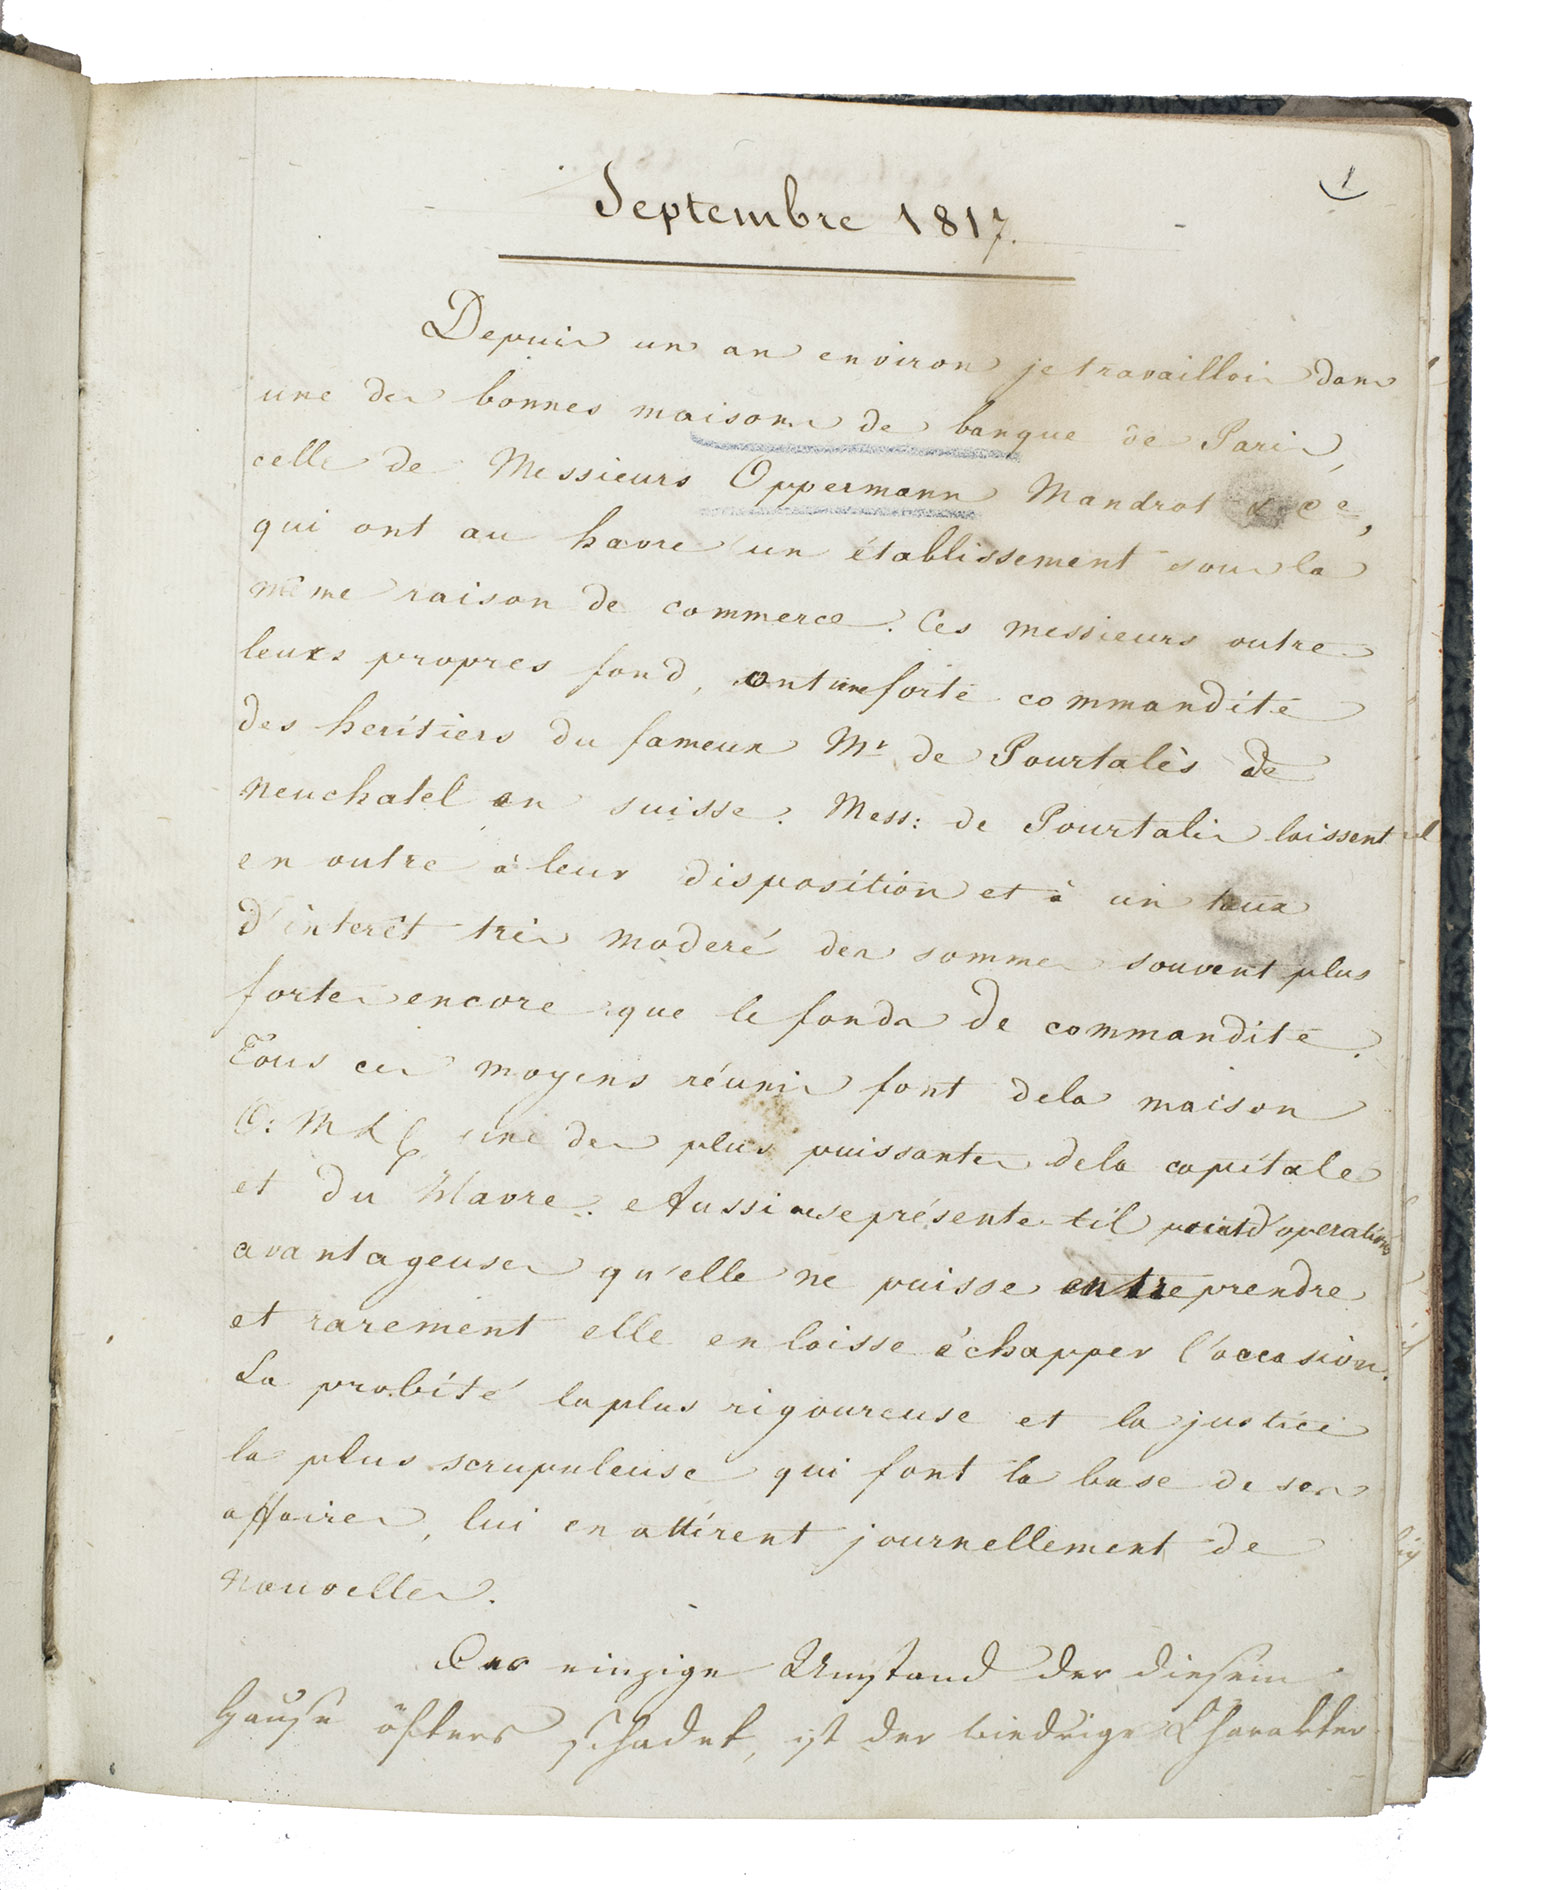 1
Septembre 1817.
Depuis un an environ je travaillois dans
une des bonnes maisons de banque de Paris,
celle de Messieurs Oppermann Mandrot & Ce,
qui ont au havre un établissement sous la
même raison de commerce. Ces messieurs outre
leurs propres fond, ont une forte commandite
des heritiers du fameux Mr de Pourtalès de
Neuchatel en suisse. Mess: de Pourtalès laissent
en outre à leur disposition et à un taux
d'interêt très moderé des sommes souvent plus
fortes encore que le fonds de commandite.
Tous ces moyens réunis font dela maison
O: M & C une des plus puissantes dela capitale
et du Havre. Aussi ne se présente-t'il point d'operations
avantageuses qu'elle ne puisse entreprendre
et rarement elle en laisse échapper l'occasion.
La probité la plus rigoureuse et la justice
la plus scrupuleuse qui font la base de ses
affaires, lui en attirent journellement de
nouvelles.
Der einzige Umstand der diesem
Hause öfters schadet, ist der Charakter